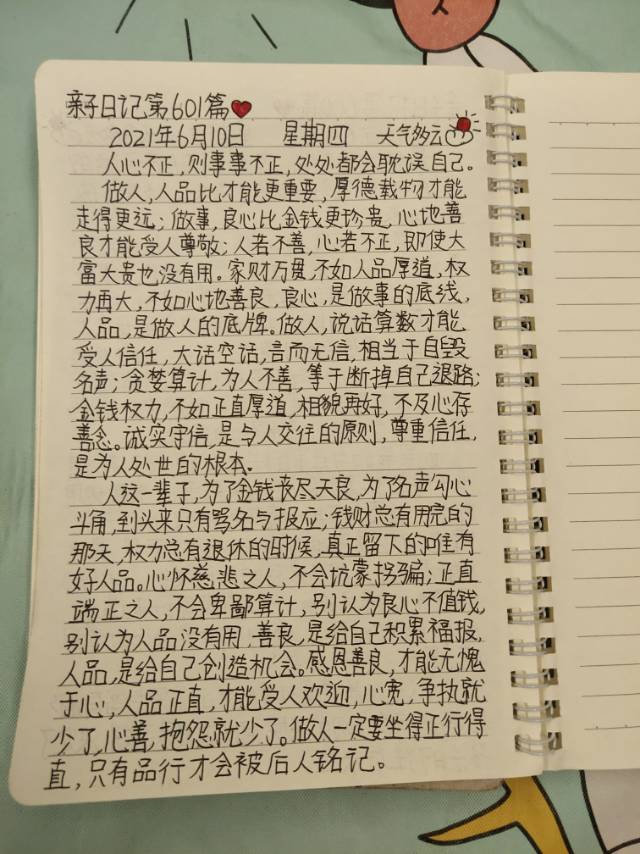 亲子日记第601篇
2021年6月10日 星期四 天气多云
人心不正,则事事不正,处处都会耽误自己。
做人,人品比才能更重要,厚德载物才能
走得更远;做事,良心比金钱更珍贵,心地善
良才能受人尊敬;人若不善,心若不正,即使大
富大贵也没有用。家财万贯,不如人品厚道,权
力再大,不如心地善良,良心,是做事的底线,
人品,是做人的底牌。做人,说话算数才能
受人信任,大话空话,言而无信,相当于自毁
名声;贪婪算计,为人不善,等于断掉自己退路;
金钱权力,不如正直厚道,相貌再好,不及心存
善念。诚实守信,是与人交往的原则,尊重信任,
是为人处世的根本.
人这一辈子,为了金钱丧尽天良,为了名声勾心
斗角,到头来只有骂名与报应;钱财总有用完的
那天,权力总有退休的时候,真正留下的唯有
好人品。心怀慈悲之人,不会坑蒙拐骗;正直
端正之人,不会卑鄙算计,别认为良心不值钱,
别认为人品没有用,善良,是给自己积累福报,
人品,是给自己创造机会。感恩善良,才能无愧
于心,人品正直,才能受人欢迎,心宽,争执就
少了,心善,抱怨就少了。做人一定要坐得正行得
直,只有品行才会被后人铭记。